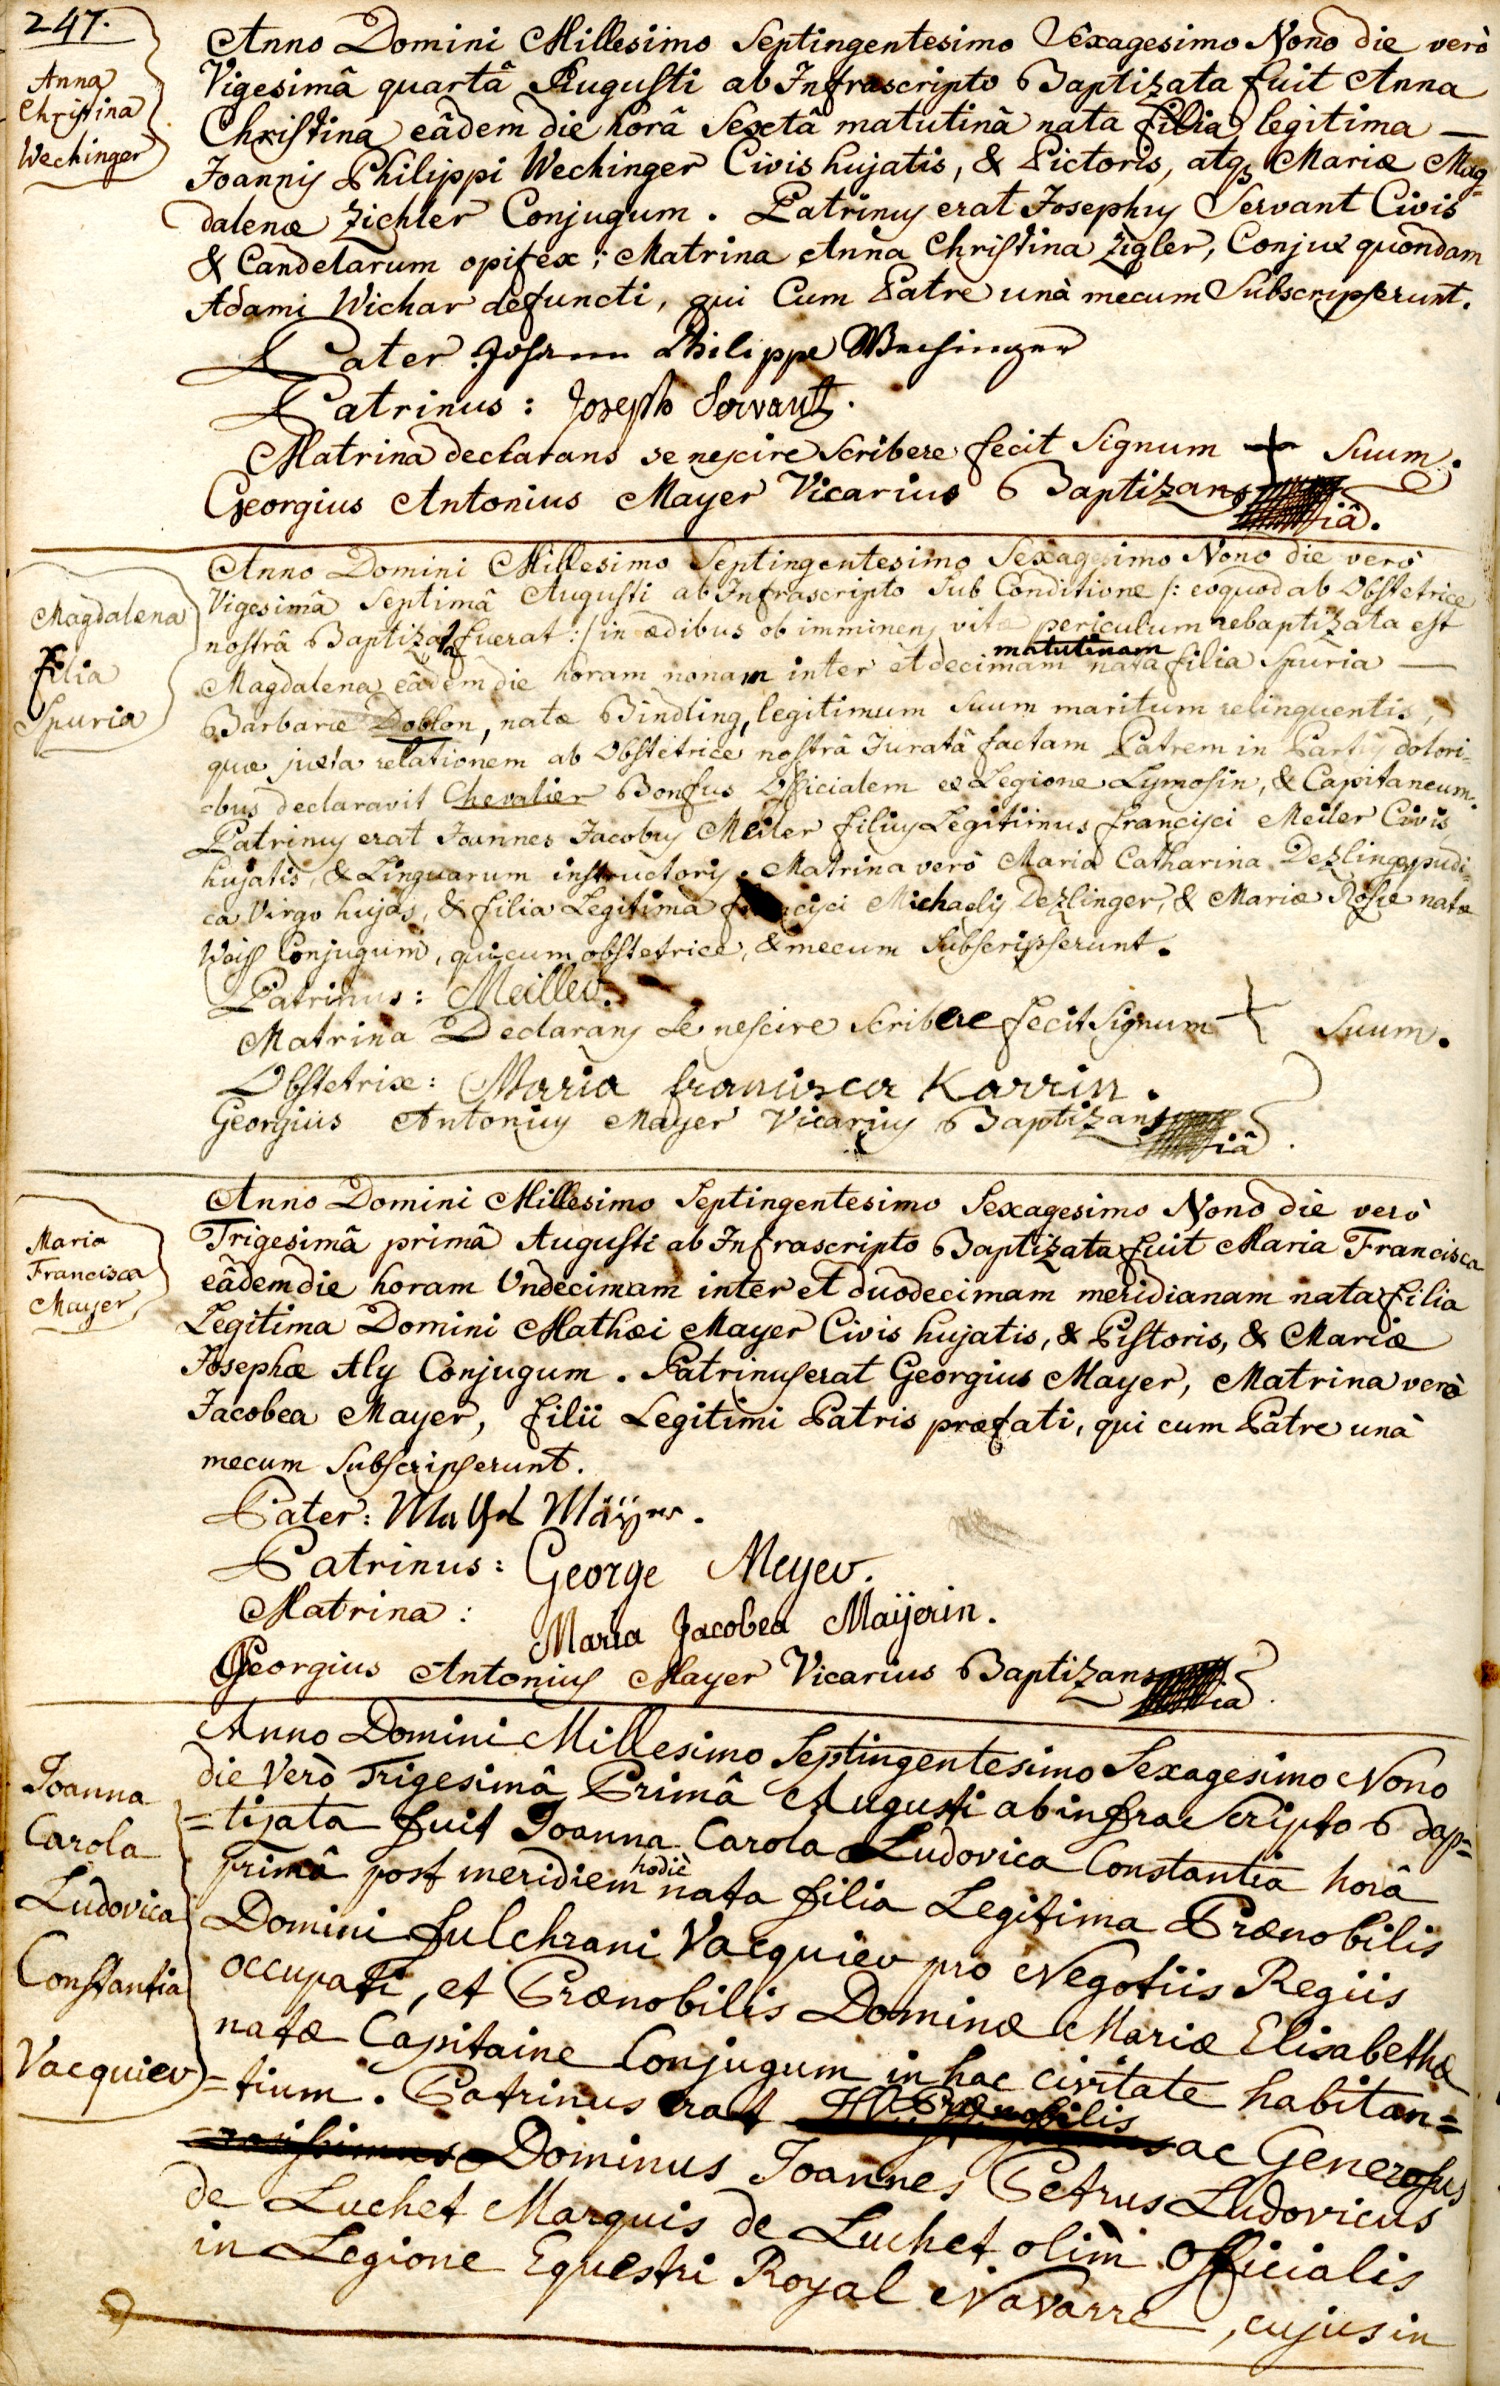 247.
Anna
Christina
Wechinger
Anno Domini Millesimo Septingentesimo Sexagesimo Nono die verò
Vigesimâ quartâ Augusti ab Infrascripto Baptizata fuit Anna
Christina eâdem die horâ Sextâ matutinâ nata filia legitima —
Joannis Philippi Wechinger Civis hujatis, & Pictoris, atq3 Mariæ Mag=
dalenæ Zichler Conjugum. Patrinus erat Josephus Servant Civis
& Candelarum opifex; Matrina Anna Christina Zigler, Conjux quondam
Adami Wichar defuncti, qui Cum Patre unà mecum Subscripserunt.
Pater Johann Philippe Wechinger
Patrinus: Joseph Servant.
Matrina declarans se nescire Scribere fecit Signum + Suum.
Georgius Antonius Mayer Vicarius Baptizans
iâ.
Magdalena
filia
Spuria
Anno Domini Millesimo Septingentesimo Sexagesimo Nono die verò
Vigesimâ Septimâ Augusti ab Infrascripto Sub Conditione /: eo quod ab Obstetrice
nostrâ Baptizata fuerat :/ in ædibus ob imminens vitæ periculum rebaptizata est
Magdalena eâdem die horam nonam inter et decimam matutinam nata filia Spuria —
Barbaræ Doblon, natæ Bindling, legitimum Suum maritum relinquentis,
quæ juxta relationem ab Obstetrice nostrâ Juratâ factam Patrem in Partûs dolori=
=bus declaravit Chevalier Bonfus Officialem ex Legione Lymosin, & Capitaneum.
Patrinus erat Joannes Jacobus Meiler filius Legitimus francisci Meiler Civis
hujatis, & Linguarum instructoris. Matrina verò Maria Catharina Dezlinger pudi=
ca Virgo hujas, & filia Legitima francisci Michaelis Dezlinger, & Mariæ Rosæ natæ
Weiss Conjugum, qui cum obstetrice, & mecum Subscripserunt.
Patrinus: Meiller.
Matrina Declarans Se nescire Scribere fecit Signum + Suum.
Obstetrix: Maria francisca Karrin.
Georgius Antonius Mayer Vicarius Baptizans
iâ.
Maria
Francisca
Mayer
Anno Domini Millesimo Septingentesimo Sexagesimo Nono die verò
Trigesimâ primâ Augusti ab Infrascripto Baptizata fuit Maria Francisca
eâdem die horam Undecimam inter et duodecimam meridianam nata filia
Legitima Domini Mathæi Mayer Civis hujatis, & Pistoris, & Mariæ
Josephæ Aly Conjugum. Patrinus erat Georgius Mayer, Matrina verò
Jacobea Mayer, filii Legitimi Patris præfati, qui cum Patre unà
mecum Subscripserunt.
Pater: Mäÿer.
Patrinus: George Meyer.
Matrina: Maria Jacobea Maÿerin.
Georgius Antonius Mayer Vicarius Baptizans
ia.
Joanna
Carola
Ludovica
Constantia
Vacquier
Anno Domini Millesimo Septingentesimo Sexagesimo Nono
die Verò Trigesimâ Primâ Augusti ab infra Scripto Bap=
=tisata fuit Joanna Carola Ludovica Constantia horâ
primâ post meridiem hodiè nata filia Legitima Prænobilis
Domini fulchrani Vacquier pro Negotiis Regiis
occupati, et Prænobilis Dominæ Mariæ Elisabethæ
natæ Capitaine Conjugum in hac civitate habitan=
=tium. Patrinus erat Prænobilis ac Generosus
Dominus Joannes Petrus Ludovicus
de Luchet Marquis de Luchet olim Officialis
in Legione Equestri Royal Navarre, cujus in